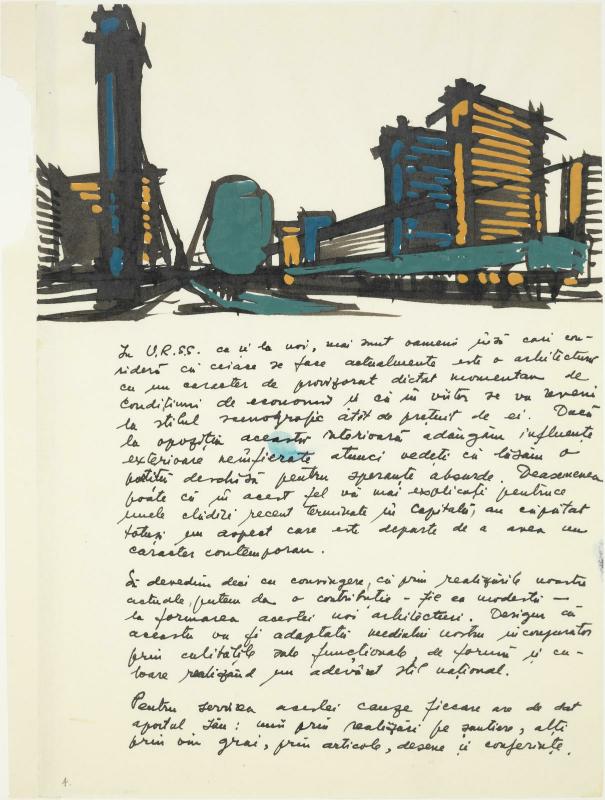 In U.R.SS. ca și la noi, mai sunt oameni însă cari con-
sideră că ceiace se face actualmente este o arhitectură
cu un caracter de provizorat dictat momentan de
condițiuni de economii și că în viitor se va reveni
la stilul scenografic atât de prețuit de ei. Dacă
la opoziția aceasta interioară adăugăm influențe
exterioare neînfierate atunci vedeți că lăsăm o
portiță deschisă pentru speranțe absurde. Deasemenea
poate că în acest fel vă mai explicați pentruce
unele clădiri recent terminate în Capitală, au căpătat
totuși un aspect care este departe de a avea un
caracter contemporan.
Să devenim deci cu convingere, că prin realizările noastre
actuale, putem da o contribuție - fie ea modestă -
la formarea acestei noi arhitecturi. Desigur că
aceasta va fi adaptată mediului nostru inconjurator
prin calitățile sale funcționale, de formă și cu-
loare realizând un adevărat stil național.
Pentru servirea acestei cauze fiecare are de dat
aportul său: unii prin realizări pe șantiere, alți
prin viu grai, prin articole, desene și conferințe.
4.